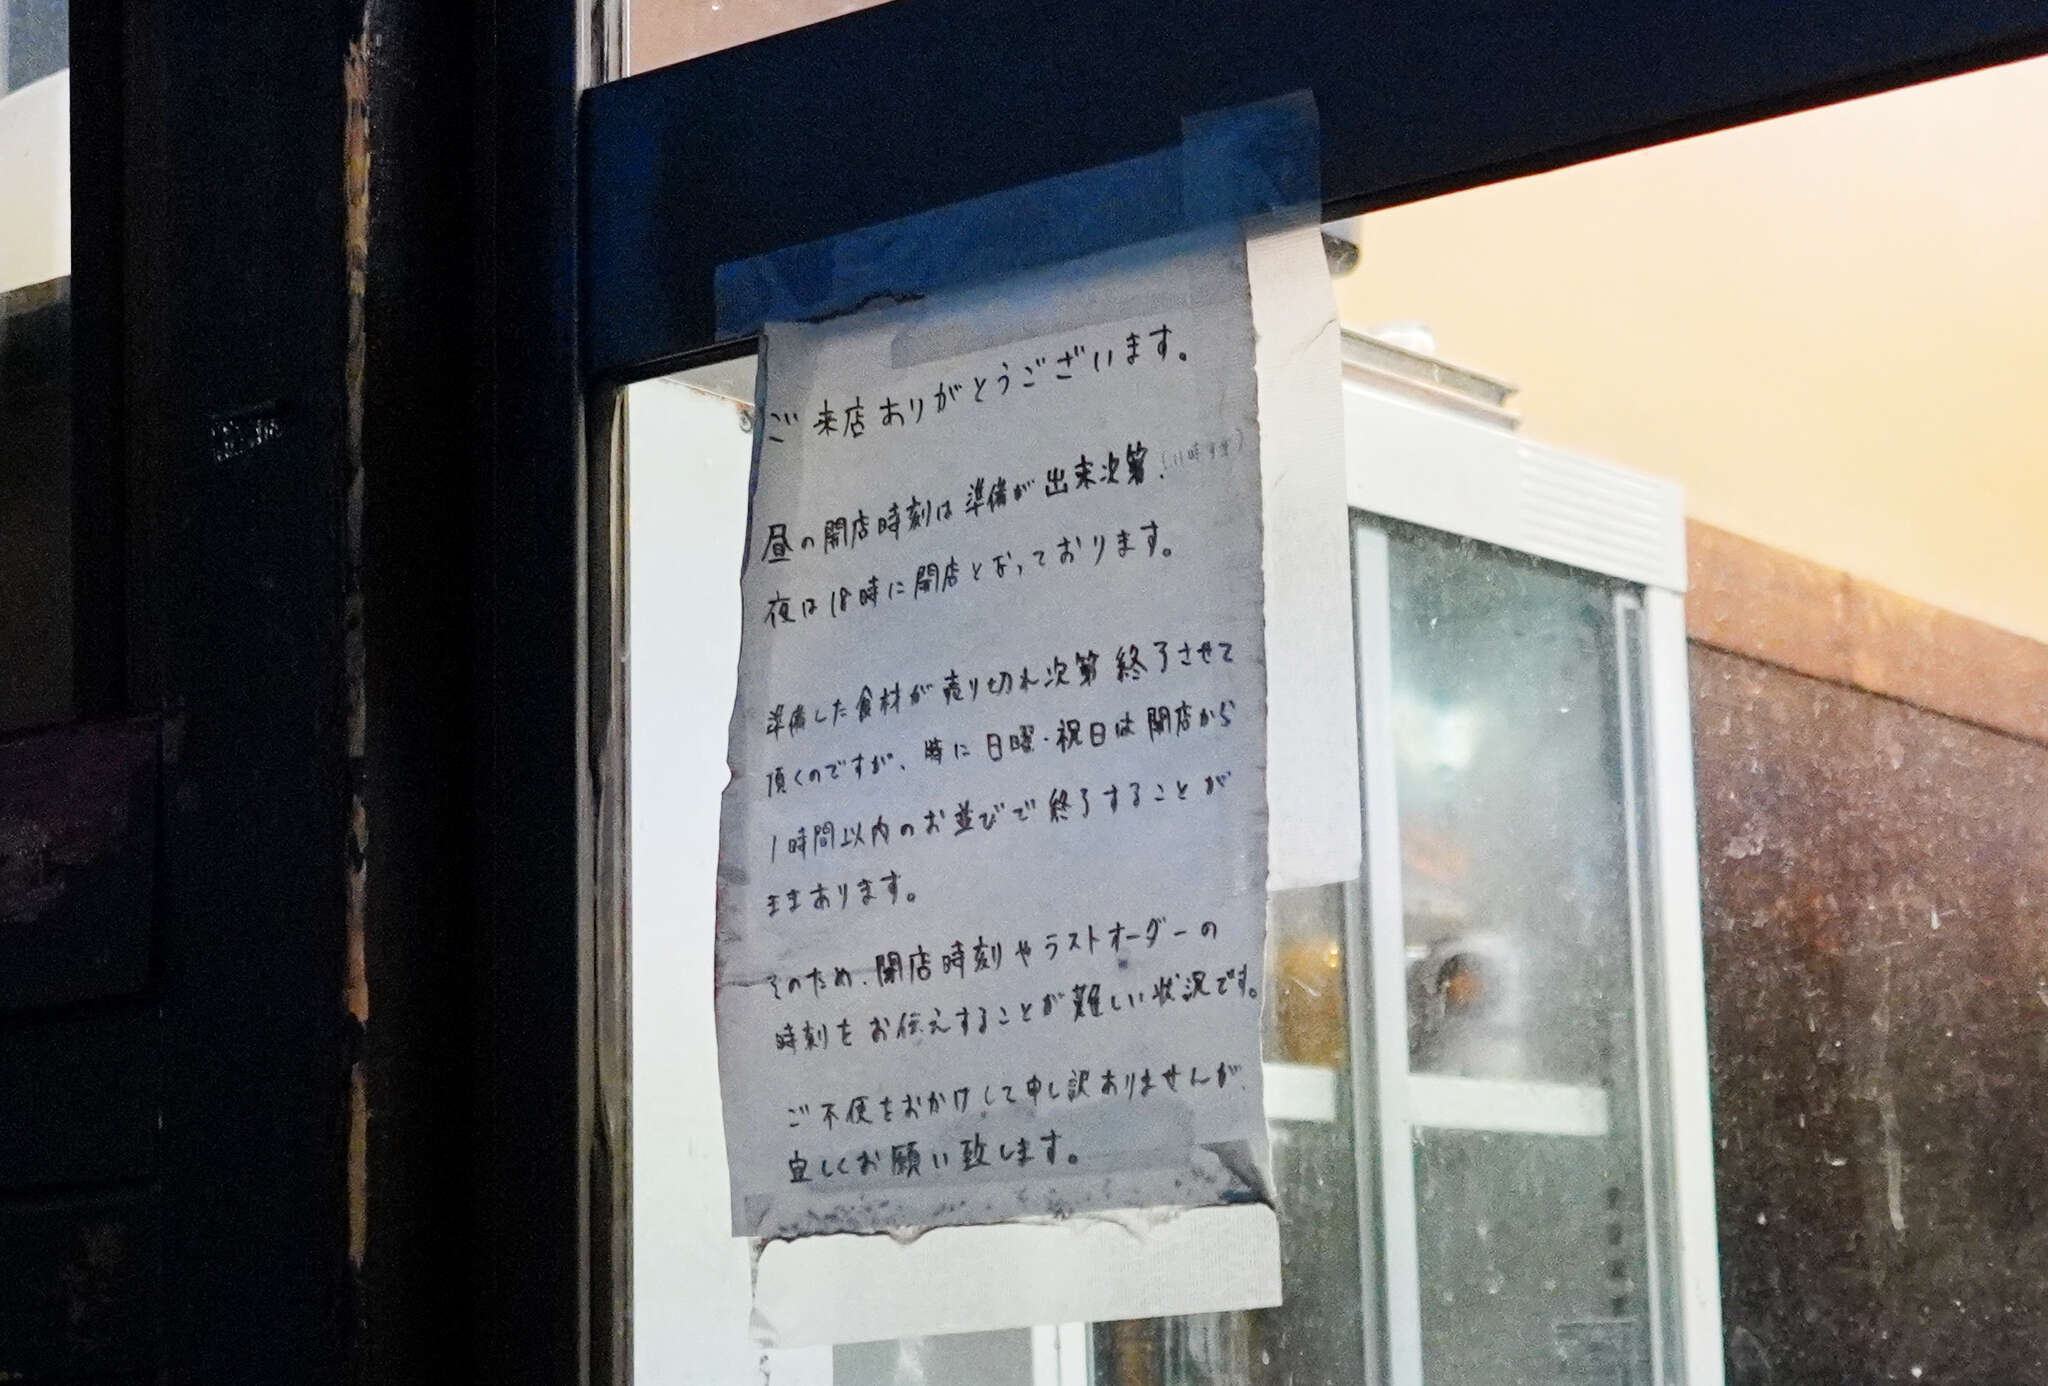 ご来店ありがとうございます。
昼の開店時刻は準備が出来次第.
夜は18時に開店となっております。
準備した食材が売り切れ次第終了させて
頂くのですが、時に日曜・祝日は開店から
1時間以内のお並びで終了することが
ままあります。
そのため、閉店時刻やラストオーダーの
時刻をお伝えすることが難しい状況です。
ご不便をおかけして申し訳ありませんが、
宜しくお願い致します。